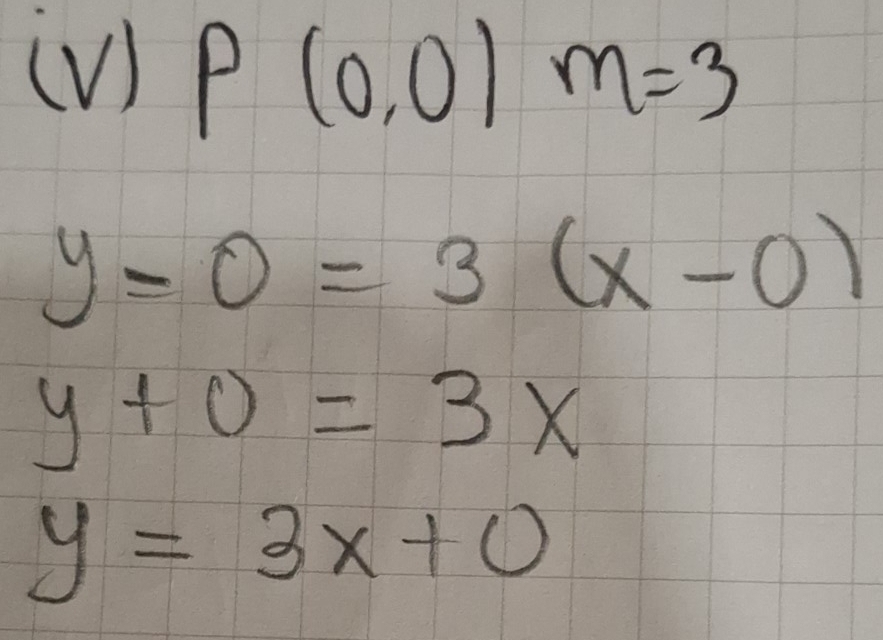 (iv) P (0,0) m=3
y - 0 = 3 (x - 0)
y + 0 = 3x
y = 3x + 0